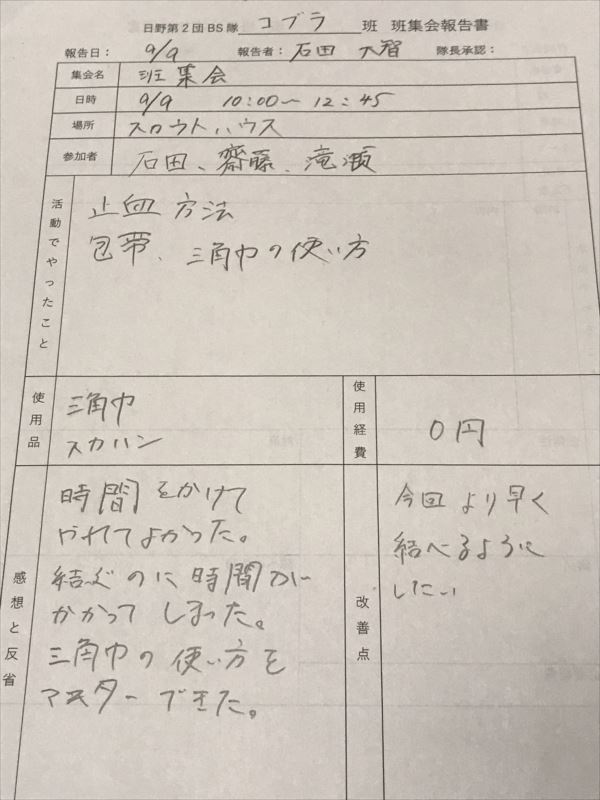 日野第2団BS隊 コブラ 班 班集会報告書
報告日： 9/9 報告者： 石田 大智 隊長承認：
集会名 班集会
日時 9/9 10:00〜12:45
場所 スカウトハウス
参加者 石田、齋藤、滝瀬
活動でやったこと
止血方法
包帯、三角巾の使い方
使用品
三角巾
スカハン
使用経費
0円
感想と反省
時間をかけて
やれてよかった。
結ぶのに時間が
かかってしまった。
三角巾の使い方を
マスターできた。
改善点
今回より早く
結べるように
したい